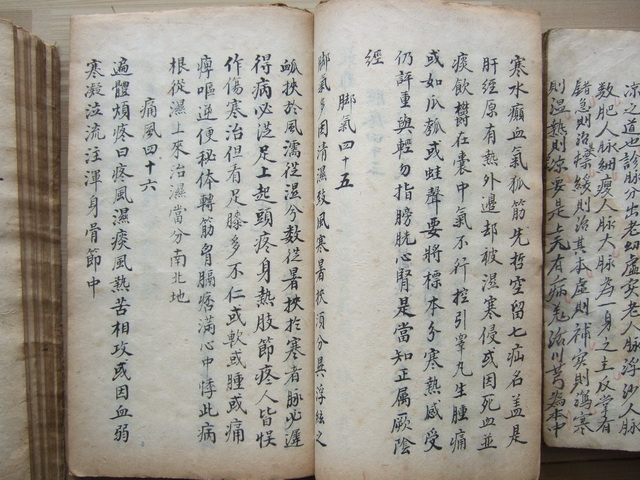 凉之道也診脉分出老幼虛实老人脉浮沙人脉
数肥人脉細瘦人脉大脉為一身之主反掌看
錯急則治標緩則治其本虛則補实則瀉寒
則温熱則凉要是上有病治川芎為本中
寒水癲血氣狐筋先哲空留七疝名盖是
肝經原有熱外邉却被濕寒侵或因死血並
痰飲欝在囊中氣不行控引睪丸生腫痛
或如瓜瓠或蛙聲要將標本分寒熱感受
仍許重與輕勿指膀胱心腎是當知正属厥陰
經
脚氣四十五
脚氣多因清濕致風寒暑挾須分異浮絃之
挾於風濡從湿今数從暑挾於寒者脉必遲
得病必從足上起頭疼身熱肢節疼人皆悞
作傷寒治但有足膝多不仁或軟或腫或痛
痺嘔逆便秘体轉筋胷膈痞滿心中悸此病
根從濕上來治濕當分南北地
痛風四十六
遍體煩疼曰疼風濕痰風熱苦相攻或因血弱
寒凝泣流注渾身骨節中